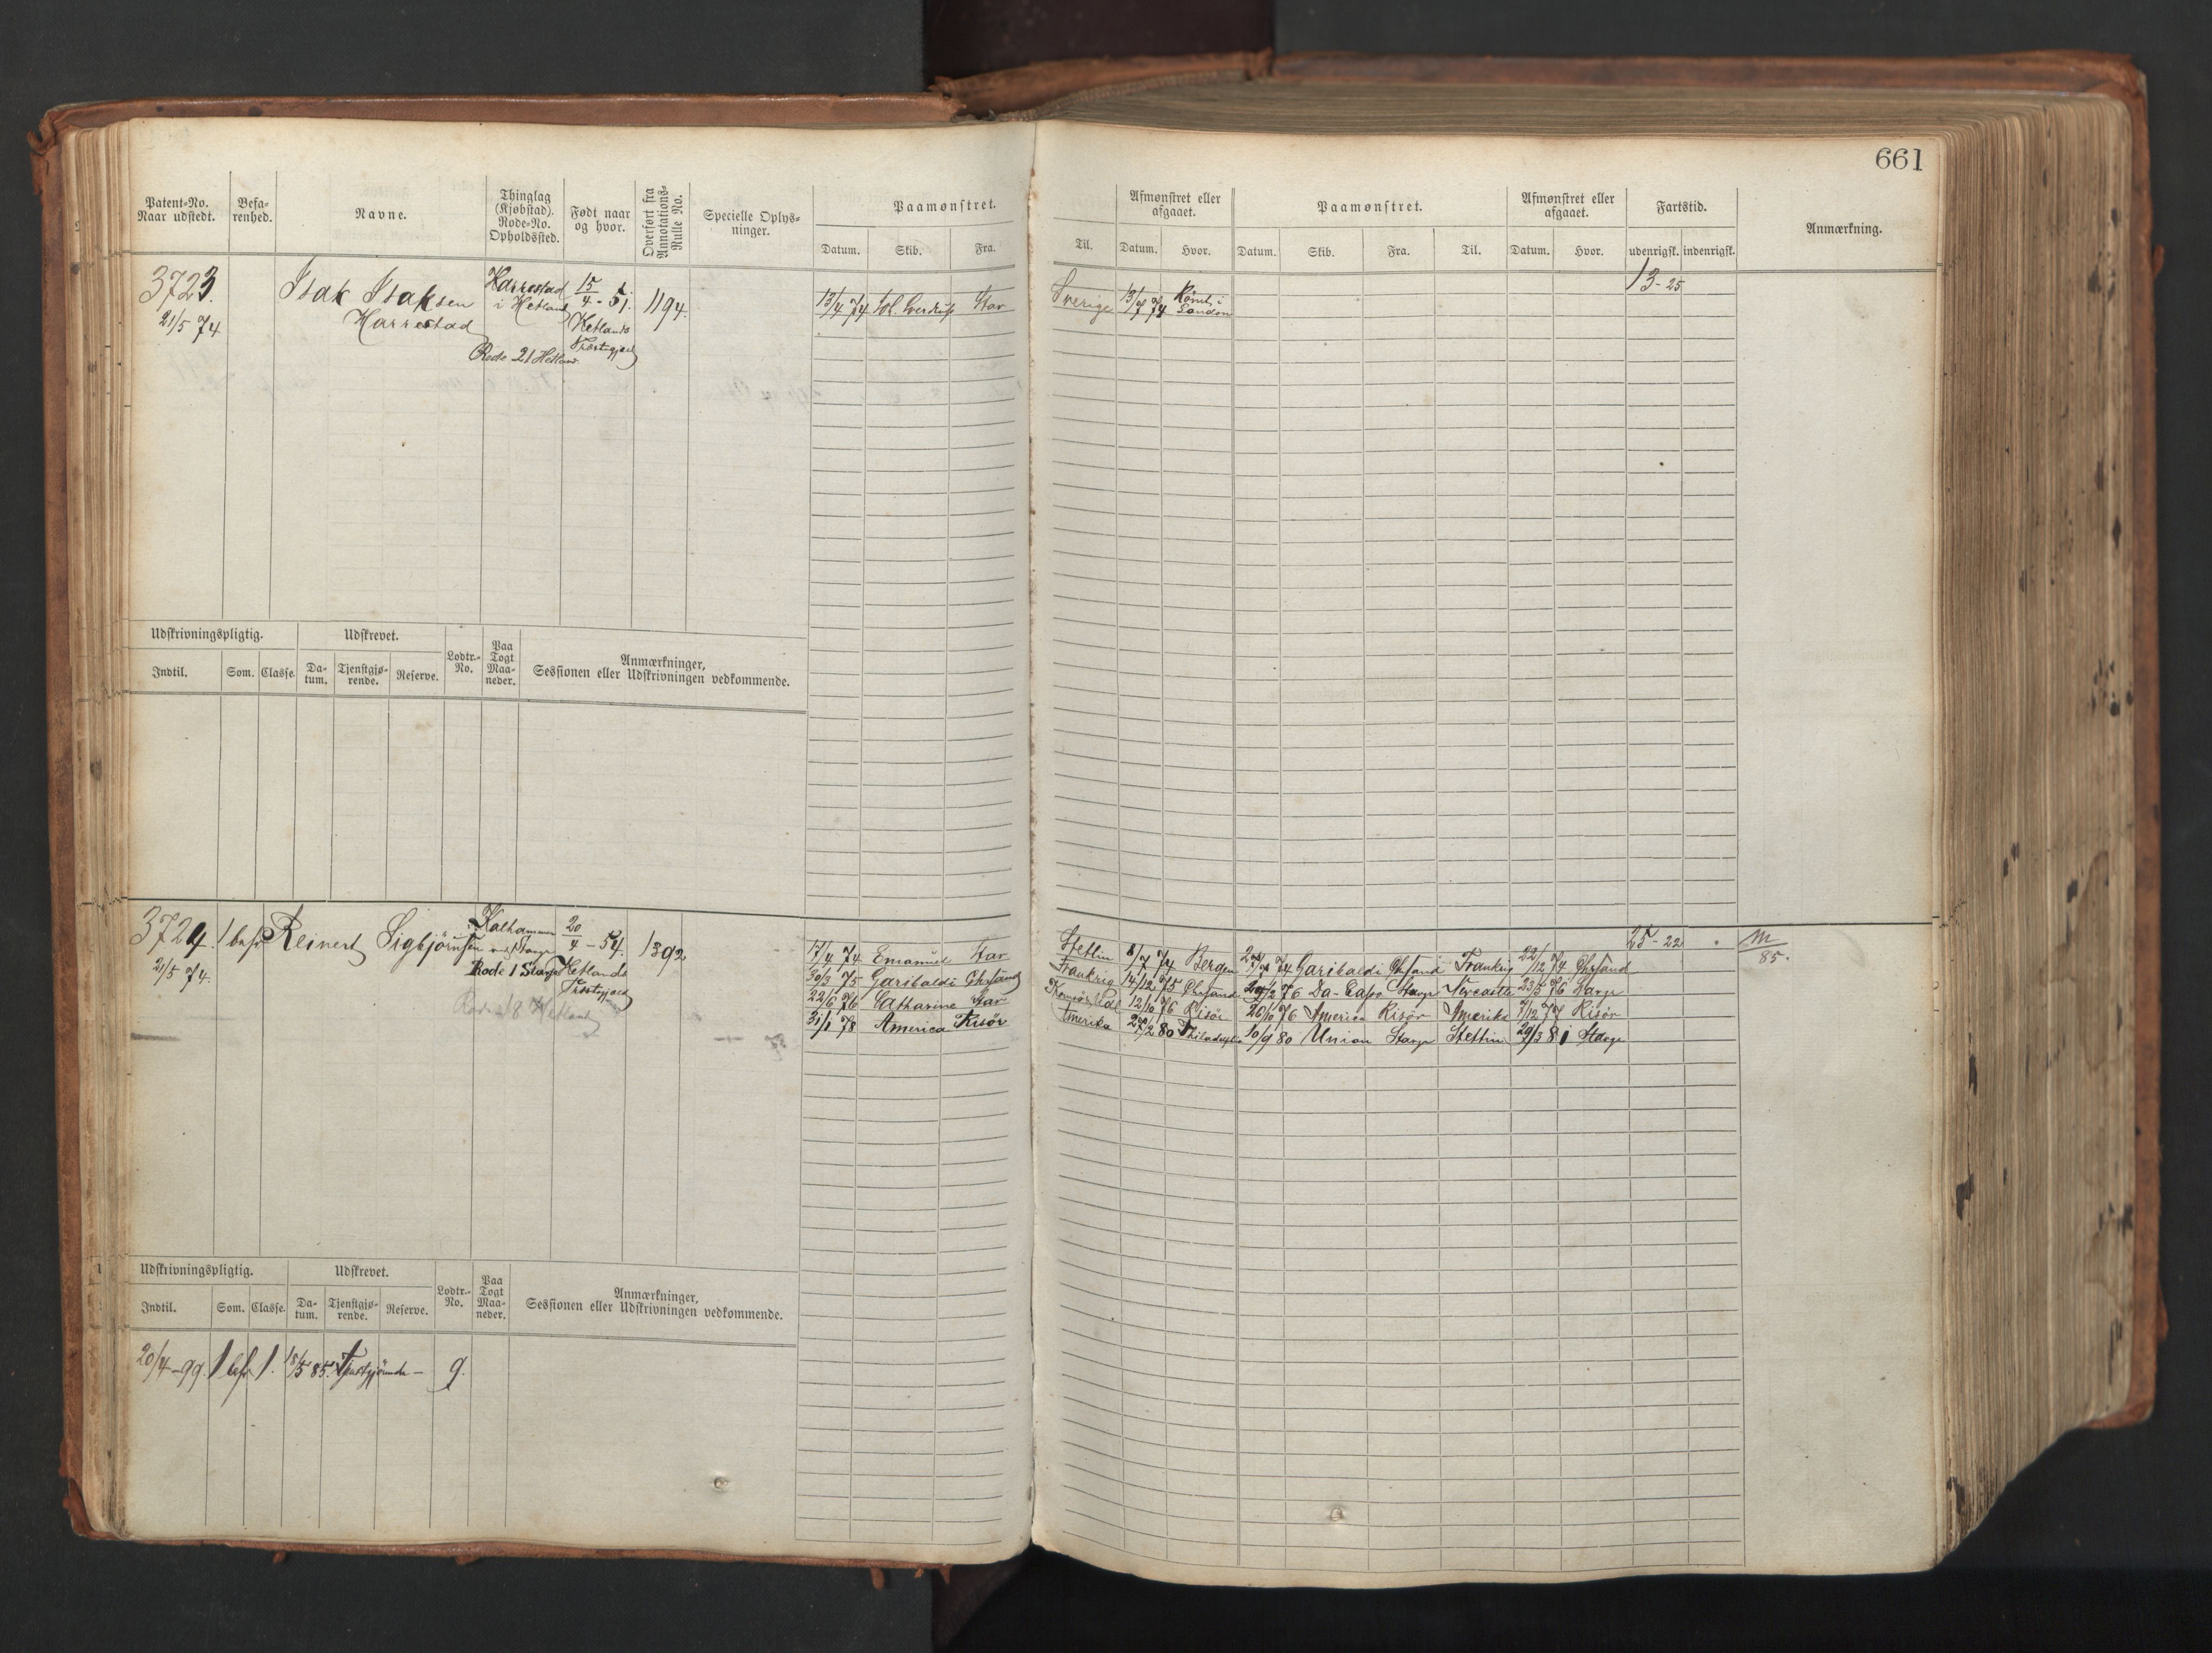 661
Patent-No. Naar udstedt.
Befarenhed.
Navne.
Thinglag (Kjøbstad). Rode-No. Opholdssted.
Født naar og hvor.
Overført fra Annotations-Rulle No.
Specielle Oplysninger.
Paamønstret.
Datum. Skib. Fra.
Til.
Afmønstret eller afgaaet.
Datum. Hvor.
Paamønstret.
Datum. Skib. Fra. Til.
Afmønstret eller afgaaet.
Datum. Hvor.
Fartstid.
udenrigsk. indenrigsk.
Anmærkning.
3723.
21/5 74
Isak Isaksen
Harrestad
Harrestad
i Hetland
Rode 21 Hetland
15/4 - 51.
Hetlands
Præstegjæld
1194.
13/4 74 Joh. Sverdrup Stav
Sverige 13/7 74 Rømt i London
13-25
Udskrivningspligtig.
Udskrevet.
Lodtr.-No.
Paa Togt Maaneder.
Anmærkninger,
Sessionen eller Udskrivningen vedkommende.
Indtil. Som. Classe. Datum. Tjenstgjørende. Reserve.
3724. 1 bef Reinert Sigbjörnsen
21/5 74.
Kalhammer
ved Stavgr
Rode 1 Stavgr
Rode 18 Hetland
20/4 - 54.
Hetlands
Præstegjæld
1392
17/4 74 Emanuel Stav
30/3 75 Garibaldi Chrsand
22/6 76 Catharine Stav
31/1 78 America Risör
Stettin 8/7 74 Bergen
Frankrig 14/12 75 Chrsand
12/10 76 Risör
Amerika 27/2 80 Philadelphia
74 Garibaldi Chrsand Frankrig 22/12 74 Chrsand
76 Da-Capo Stavgr Newcastle 23/5 76 Stavgr
26/10 76 America Risör Amerika 7/12 77 Risör
10/9 80 Union Stavgr Stettin 29/3 81 Stavgr
25-22
m/85.
Udskrivningspligtig.
Udskrevet.
Lodtr.-No.
Paa Togt Maaneder.
Anmærkninger,
Sessionen eller Udskrivningen vedkommende.
Indtil. Som. Classe. Datum. Tjenstgjørende. Reserve.
20/4-99. 1 bef 1. 18/5 85. Tjenstgjörende - 9.